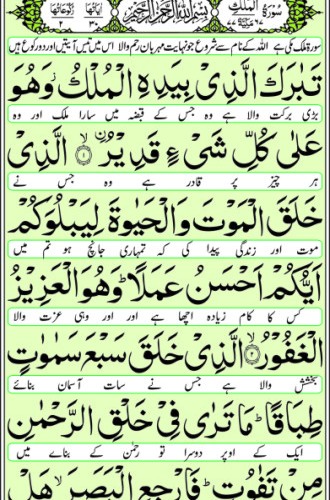 سُوْرَةُ الْمُلْكِ مَكِّيَّةٌ ٦٧ ٧٧ بِسْمِ اللّٰهِ الرَّحْمٰنِ الرَّحِيْمِ اٰيَاتُهَا ٣٠ رُكُوْعَاتُهَا ٢
سورۃ ملک مکی ہے اللہ کے نام سے شروع جو نہایت مہربان رحم والا اس میں تیس آیتیں اور دو رکوع ہیں
تَبٰرَكَ الَّذِىْ بِيَدِهِ الْمُلْكُ وَهُوَ
بڑی برکت والا ہے وہ جس کے قبضہ میں سارا ملک اور وہ
عَلٰى كُلِّ شَىْءٍ قَدِيْرُ ۙ﴿١﴾ الَّذِىْ
ہر چیز پر قادر ہے وہ جس نے
خَلَقَ الْمَوْتَ وَالْحَيٰوةَ لِيَبْلُوَكُمْ
موت اور زندگی پیدا کی کہ تمہاری جانچ ہو تم میں
اَيُّكُمْ اَحْسَنُ عَمَلًا ؕ وَهُوَ الْعَزِيْزُ
کس کا کام زیادہ اچھا ہے اور وہی عزت والا
الْغَفُوْرُ ۙ﴿٢﴾ الَّذِىْ خَلَقَ سَبْعَ سَمٰوٰتٍ
بخشش والا ہے جس نے سات آسمان بنائے
طِبَاقًا ؕ مَا تَرٰى فِىْ خَلْقِ الرَّحْمٰنِ
ایک کے اوپر دوسرا تو رحمٰن کے بنانے میں
مِنْ تَفٰوُتٍ ؕ فَارْجِعِ الْبَصَرَ ۙ هَلْ